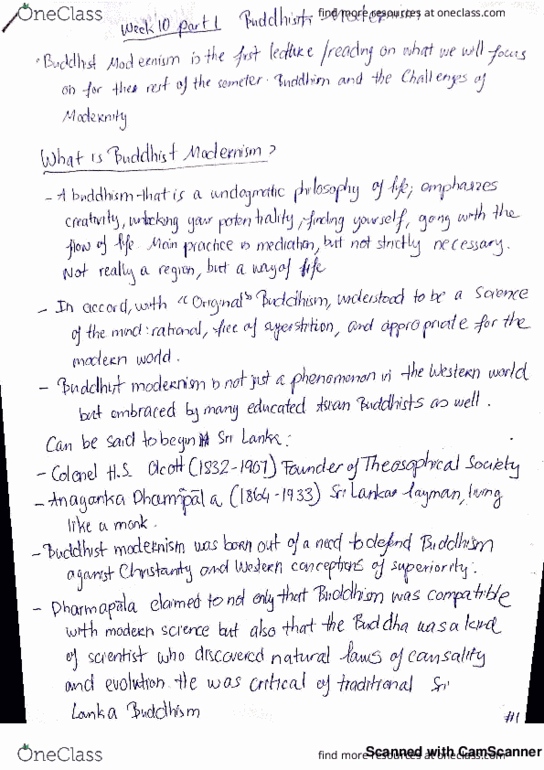 OneClass
find more resources at oneclass.com
Week 10 part 1 Buddhists
· Buddhist Modernism is the first lecture / reading on what we will focus
on for ther rest of the semeter. Buddhism and the Challenges of
Modernity
What is Buddhist Modernism?
- A buddhism that is a undogmatic philosophy of life; emphasizes
creativity, unlocking your potentiality, finding yourself, going with the
flow of life. Main practice is mediation, but not strictly necessary.
Not really a region, but a way of life
- In accord, with "Original" Buddhism, understood to be a Science
of the mind: rational, free of superstition, and appropriate for the
modern world.
- Buddhist modernism is not just a phenomenon in the Western world
but embraced by many educated Asian Buddhists as well.
Can be said to begin Sri Lanka:
- Colonel H.S. Olcott (1832-1907) Founder of Theosophical Society
- Anagarika Dhamapala (1864-1933) Sri Lankas layman, living
like a monk.
- Buddhist modernism was born out of a need to defend Buddhism
against Christianty and Western conceptions of superiority.
- Dharmapala claimed to not only that Buddhism was compatible
with modern science but also that the Buddha was a kind
of scientist who discovered natural laws of causality
and evolution. He was critical of traditional Sri
Lanka Buddhism
#1
OneClass
find more resources at oneclass.com
Scanned with CamScanner